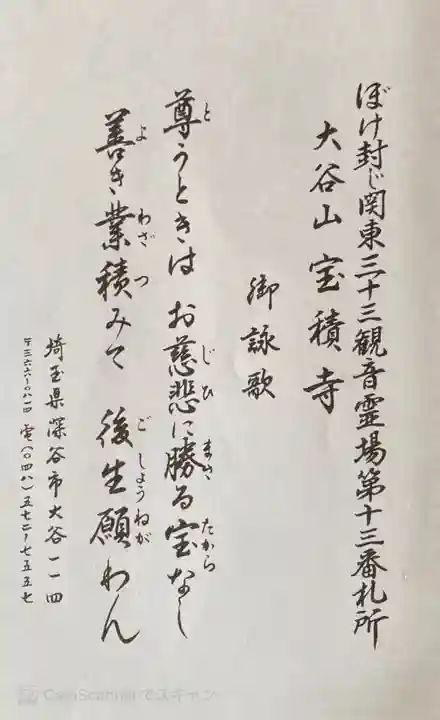 ぼけ封じ関東三十三観音霊場第十三番札所
大谷山 宝積寺
御詠歌
尊うときは お慈悲に勝る宝なし
と じひ まさ たから
善き業積みて 後生願わん
よ わざ つ ごしょうねが
埼玉県深谷市大谷一一四
〒三六六ー〇八一四 電(〇四八)五七二ー七五五七
CamScannerでスキャン